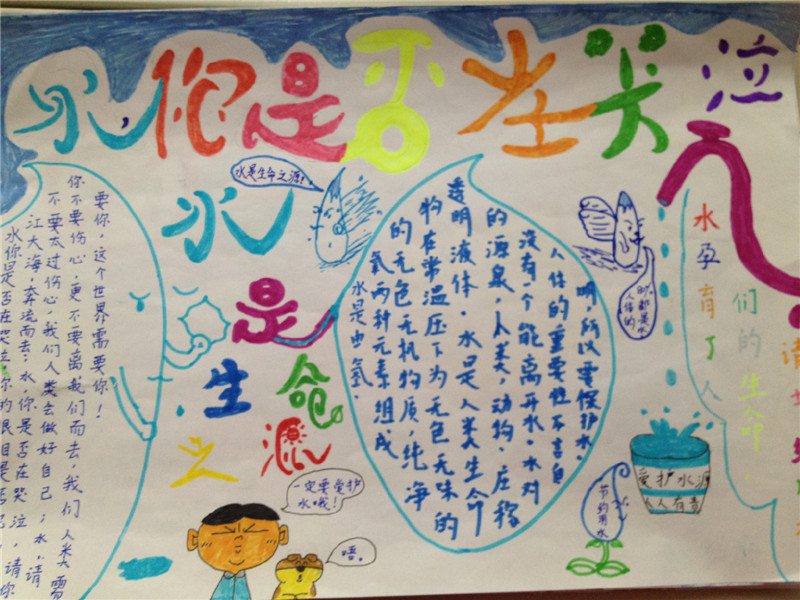 水,你是否在哭泣
水你是否在哭泣,你的眼
江大海,奔流而去,水,你是否在哭泣,请你
不要太过伤心,我们人类会做好自己;水,请
你不要伤心,更不要离我们而去,我们人类需
要你,这个世界需要你!
水是生命之源!
水是生命之源
水是由氢.
氧两种元素组成
的无色无机物质,纯净
物在常温压下为无色无味的
透明液体.水是人类生命
的源泉,人类,动物,庄稼
没有一个能离开水.水对
人体的重要性不言自
明,所以要保护水.
人体的
都是水
水孕育了人
们的生命
请
爱护水源
人人有责
节约用水
一定要爱护
水哦!
唔.